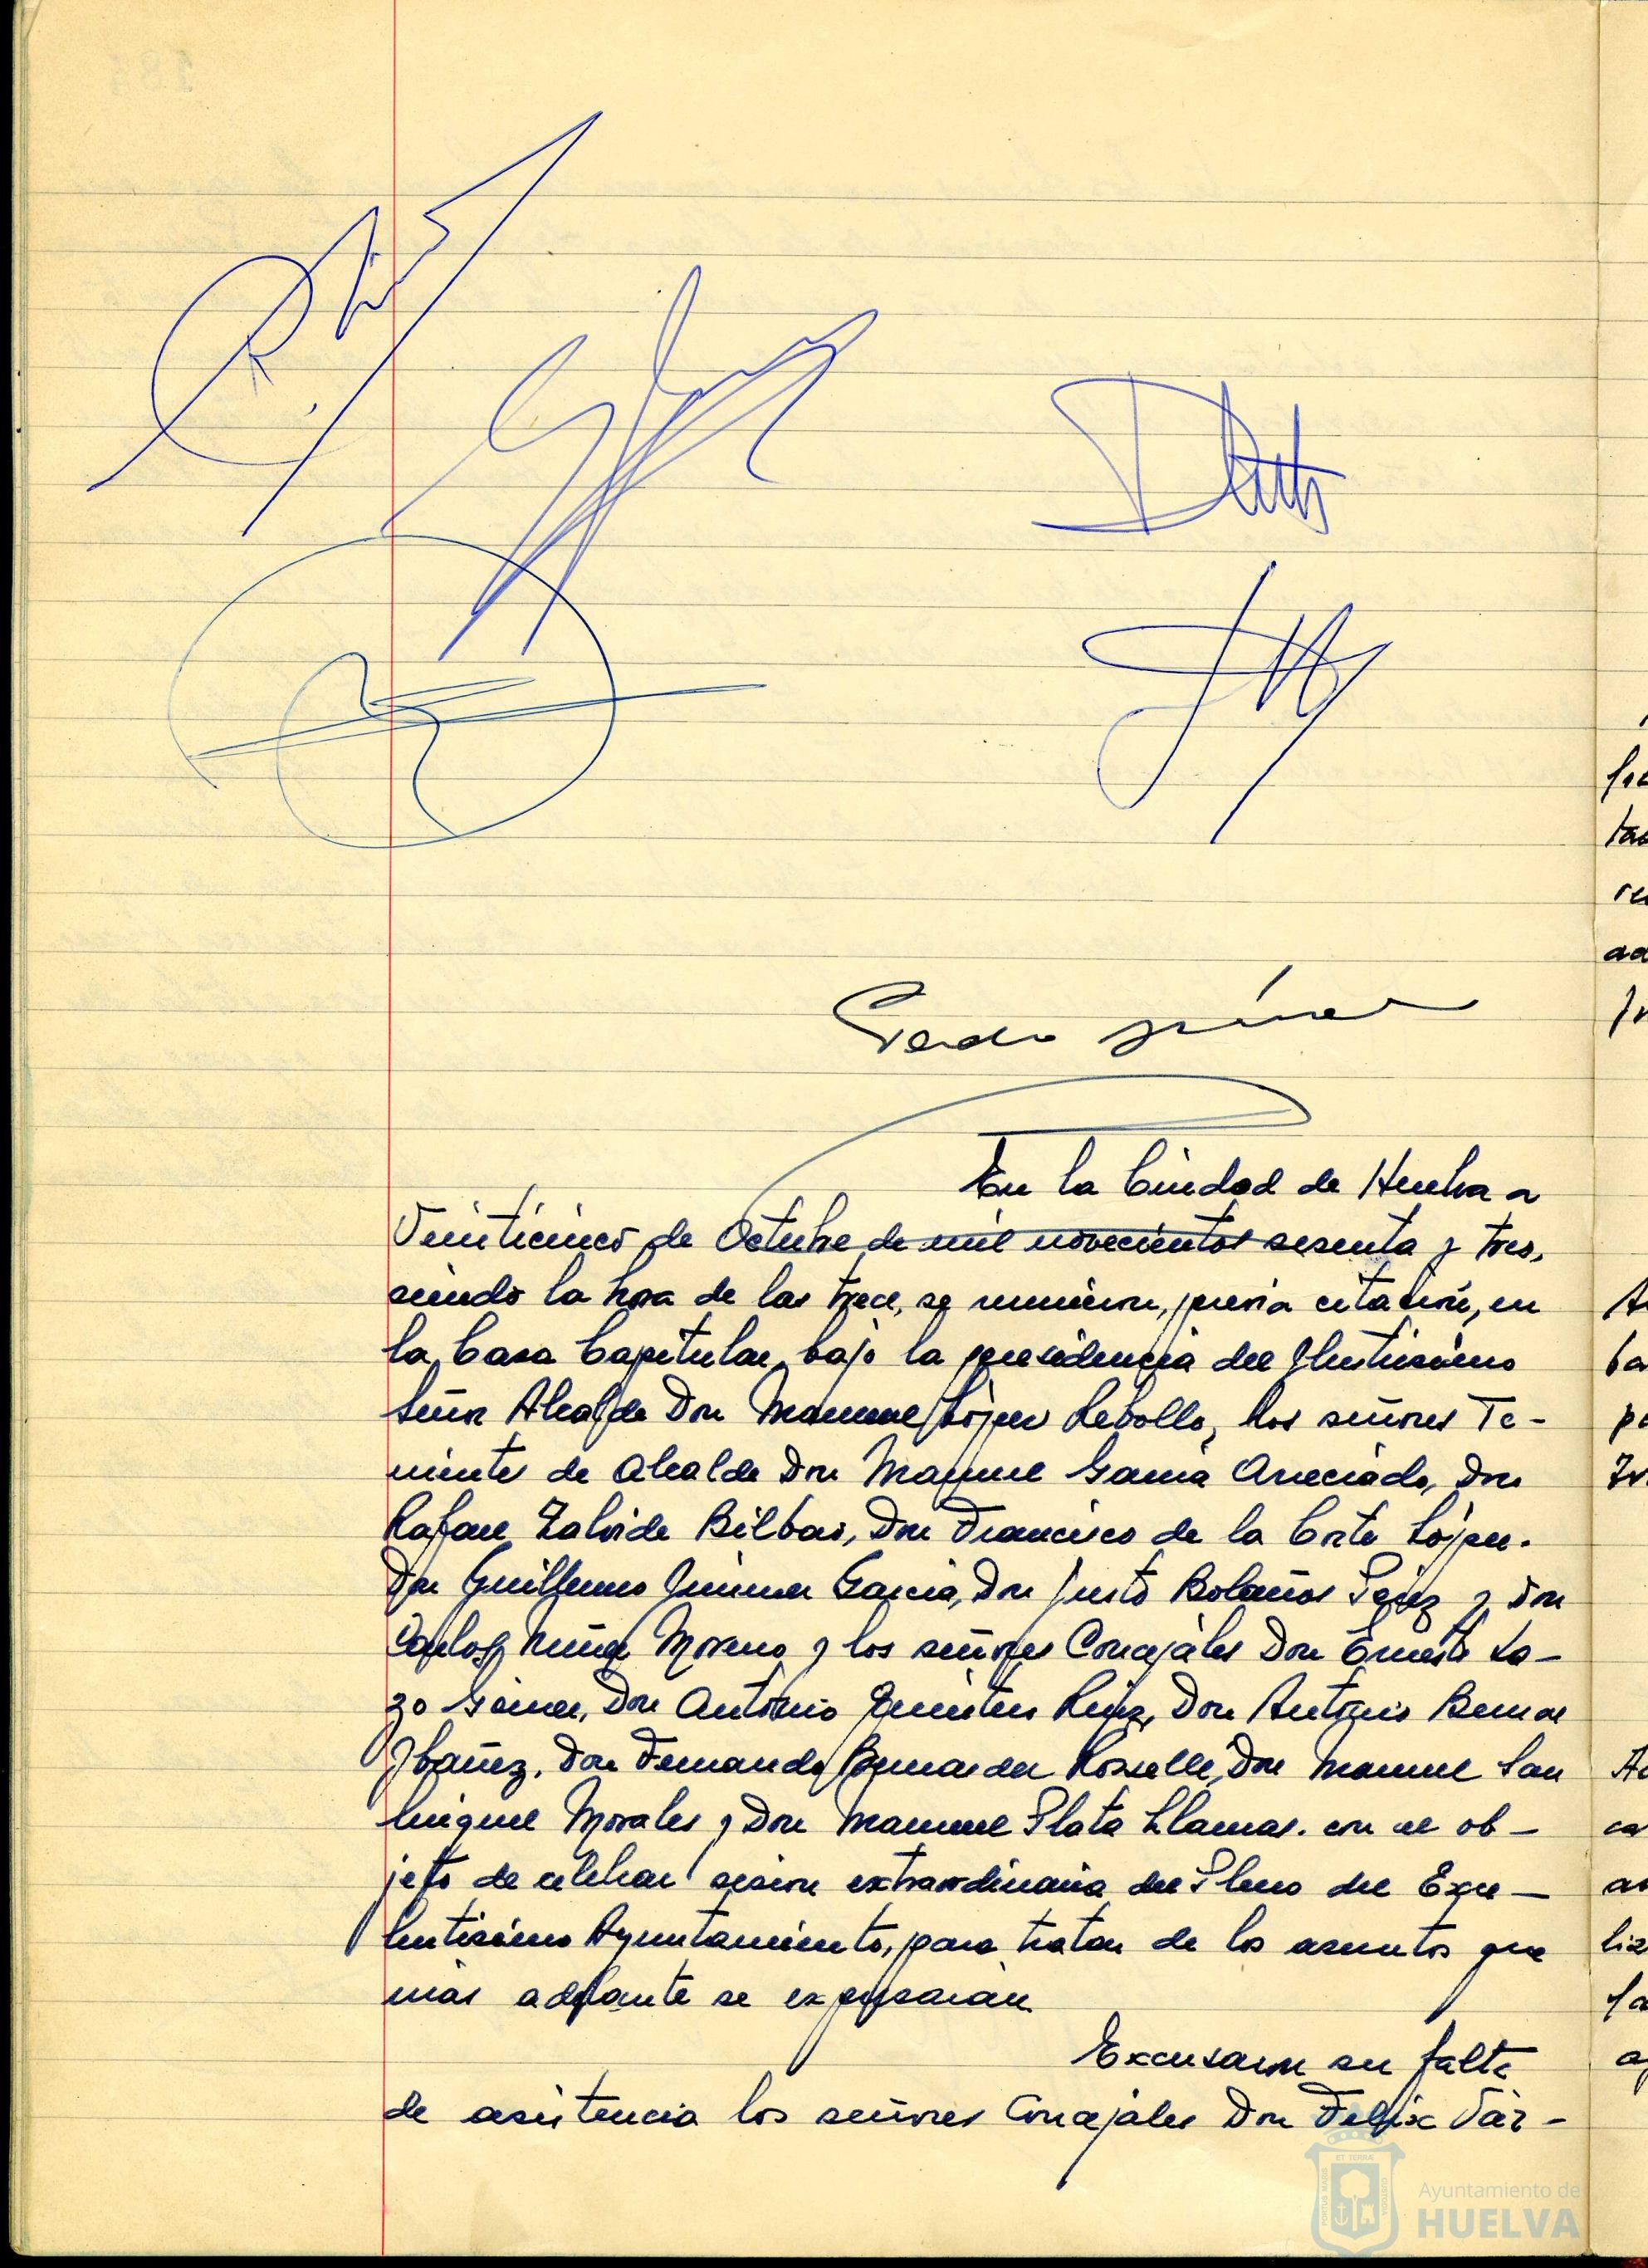 En la Ciudad de Huelva a
Veinticinco de Octubre de mil novecientos sesenta y tres,
siendo la hora de las trece, se reunieron, previa citación, en
la Casa Capitular, bajo la presidencia del Ilustrísimo
Señor Alcalde Don Manuel López Rebollo, los señores Te-
niente de Alcalde Don Manuel García Don
Rafael Zalvide Bilbao, Don Francisco de la Corte López.
Don Guillermo Jimenez García, Don Justo Bolaños Perez y Don
Carlos Nuñez Moreno y los señores Concejales Don Ernesto La-
zo Gómez, Don Antonio Ruiz, Don Antonio
Ibañez, Don Fernando Don Manuel San
Miguel Morales y Don Manuel Plata Llamas. con el ob-
jeto de celebrar sesión extraordinaria del Pleno del Exce-
lentísimo Ayuntamiento, para tratar de los asuntos que
más adelante se expresarán
Excusaron su falta
de asistencia los señores Concejales Don Felix Váz-
Ayuntamiento de
HUELVA